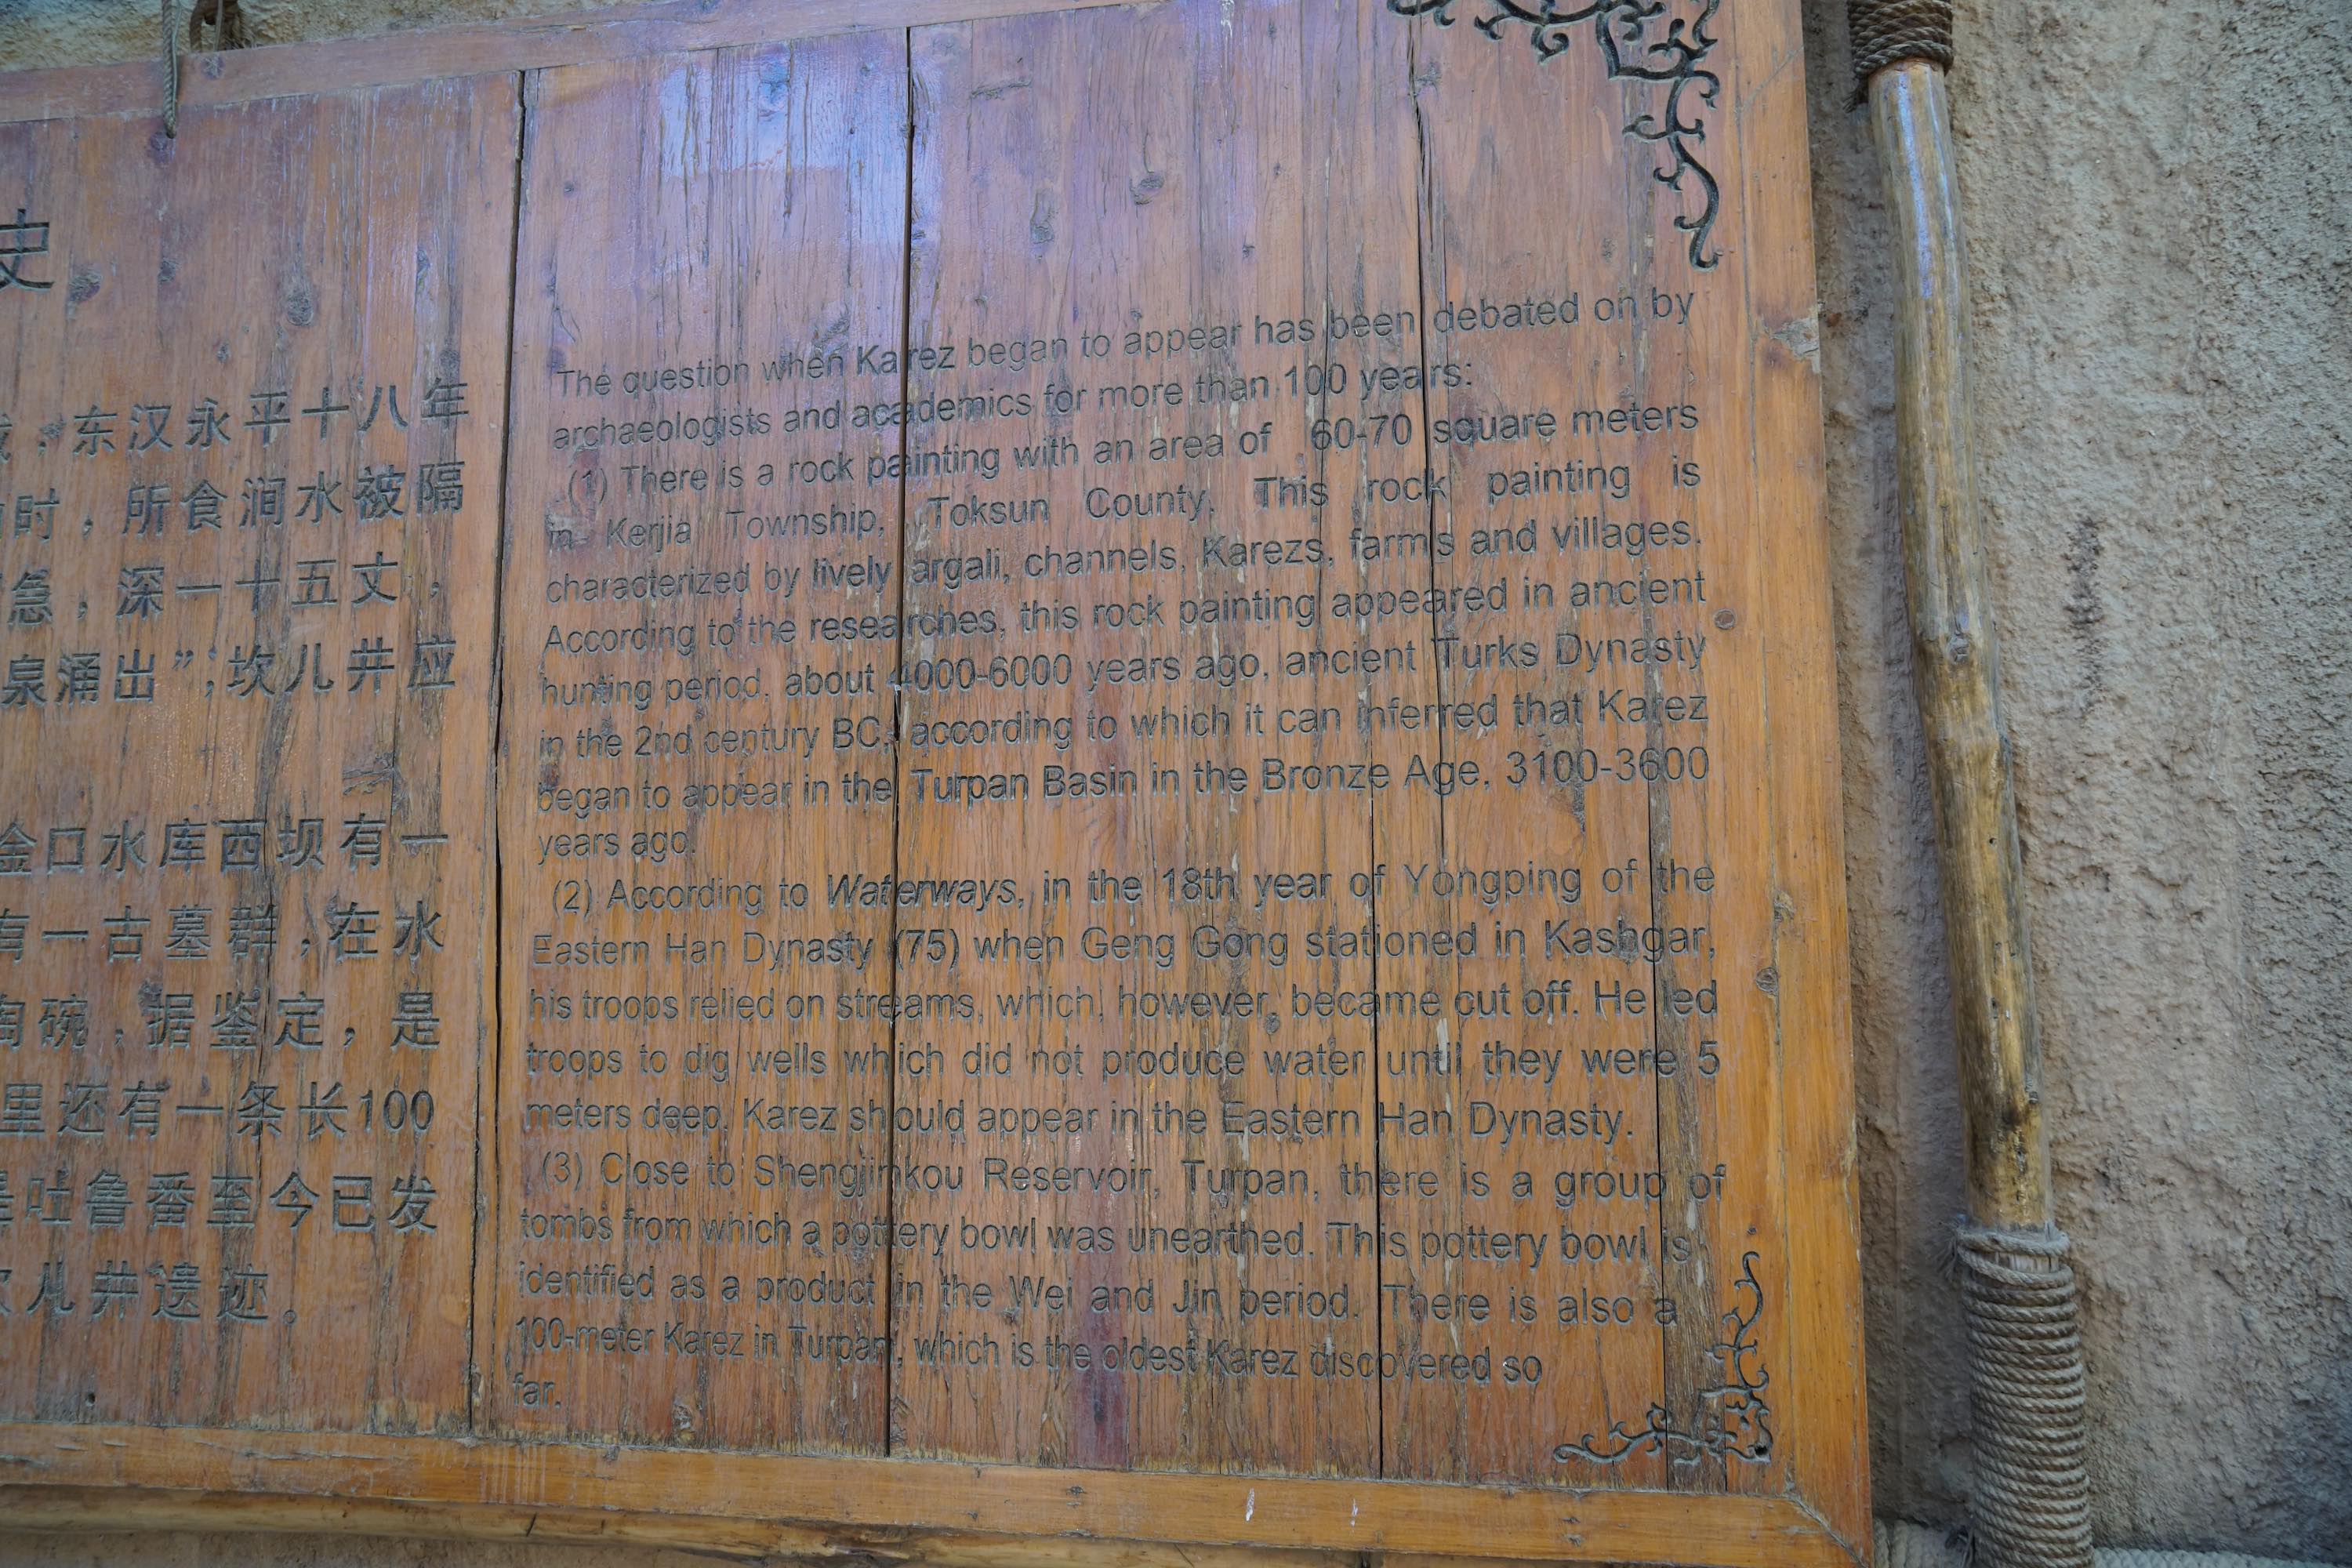 史
，东汉永平十八年
时，所食涧水被隔
急，深一十五丈，
泉涌出”，坎儿井应
金口水库西坝有一
有一古墓群，在水
陶碗，据鉴定，是
里还有一条长100
吐鲁番至今已发
坎儿井遗迹。
The question when Karez began to appear has been debated on by
archaeologists and academics for more than 100 years:
(1) There is a rock painting with an area of 60-70 square meters
in Kerjia Township, Toksun County. This rock painting is
characterized by lively argali, channels, Karezs, farms and villages.
According to the researches, this rock painting appeared in ancient
hunting period, about 4000-6000 years ago, ancient Turks Dynasty
in the 2nd century BC, according to which it can inferred that Karez
began to appear in the Turpan Basin in the Bronze Age, 3100-3600
years ago.
(2) According to Waterways, in the 18th year of Yongping of the
Eastern Han Dynasty (75) when Geng Gong stationed in Kashgar,
his troops relied on streams, which, however, became cut off. He led
troops to dig wells which did not produce water until they were 5
meters deep. Karez should appear in the Eastern Han Dynasty.
(3) Close to Shengjinkou Reservoir, Turpan, there is a group of
tombs from which a pottery bowl was unearthed. This pottery bowl is
identified as a product in the Wei and Jin period. There is also a
100-meter Karez in Turpan, which is the oldest Karez discovered so
far.